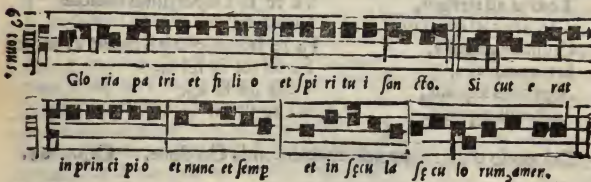 6ꝰ tonus.
Glo ria pa tri et fi li o et ſpi ri tu i ſan cto. Si cut e rat
in prin ci pi o et nunc et ſemp et in ſęcu la ſę cu lo rum, amen.